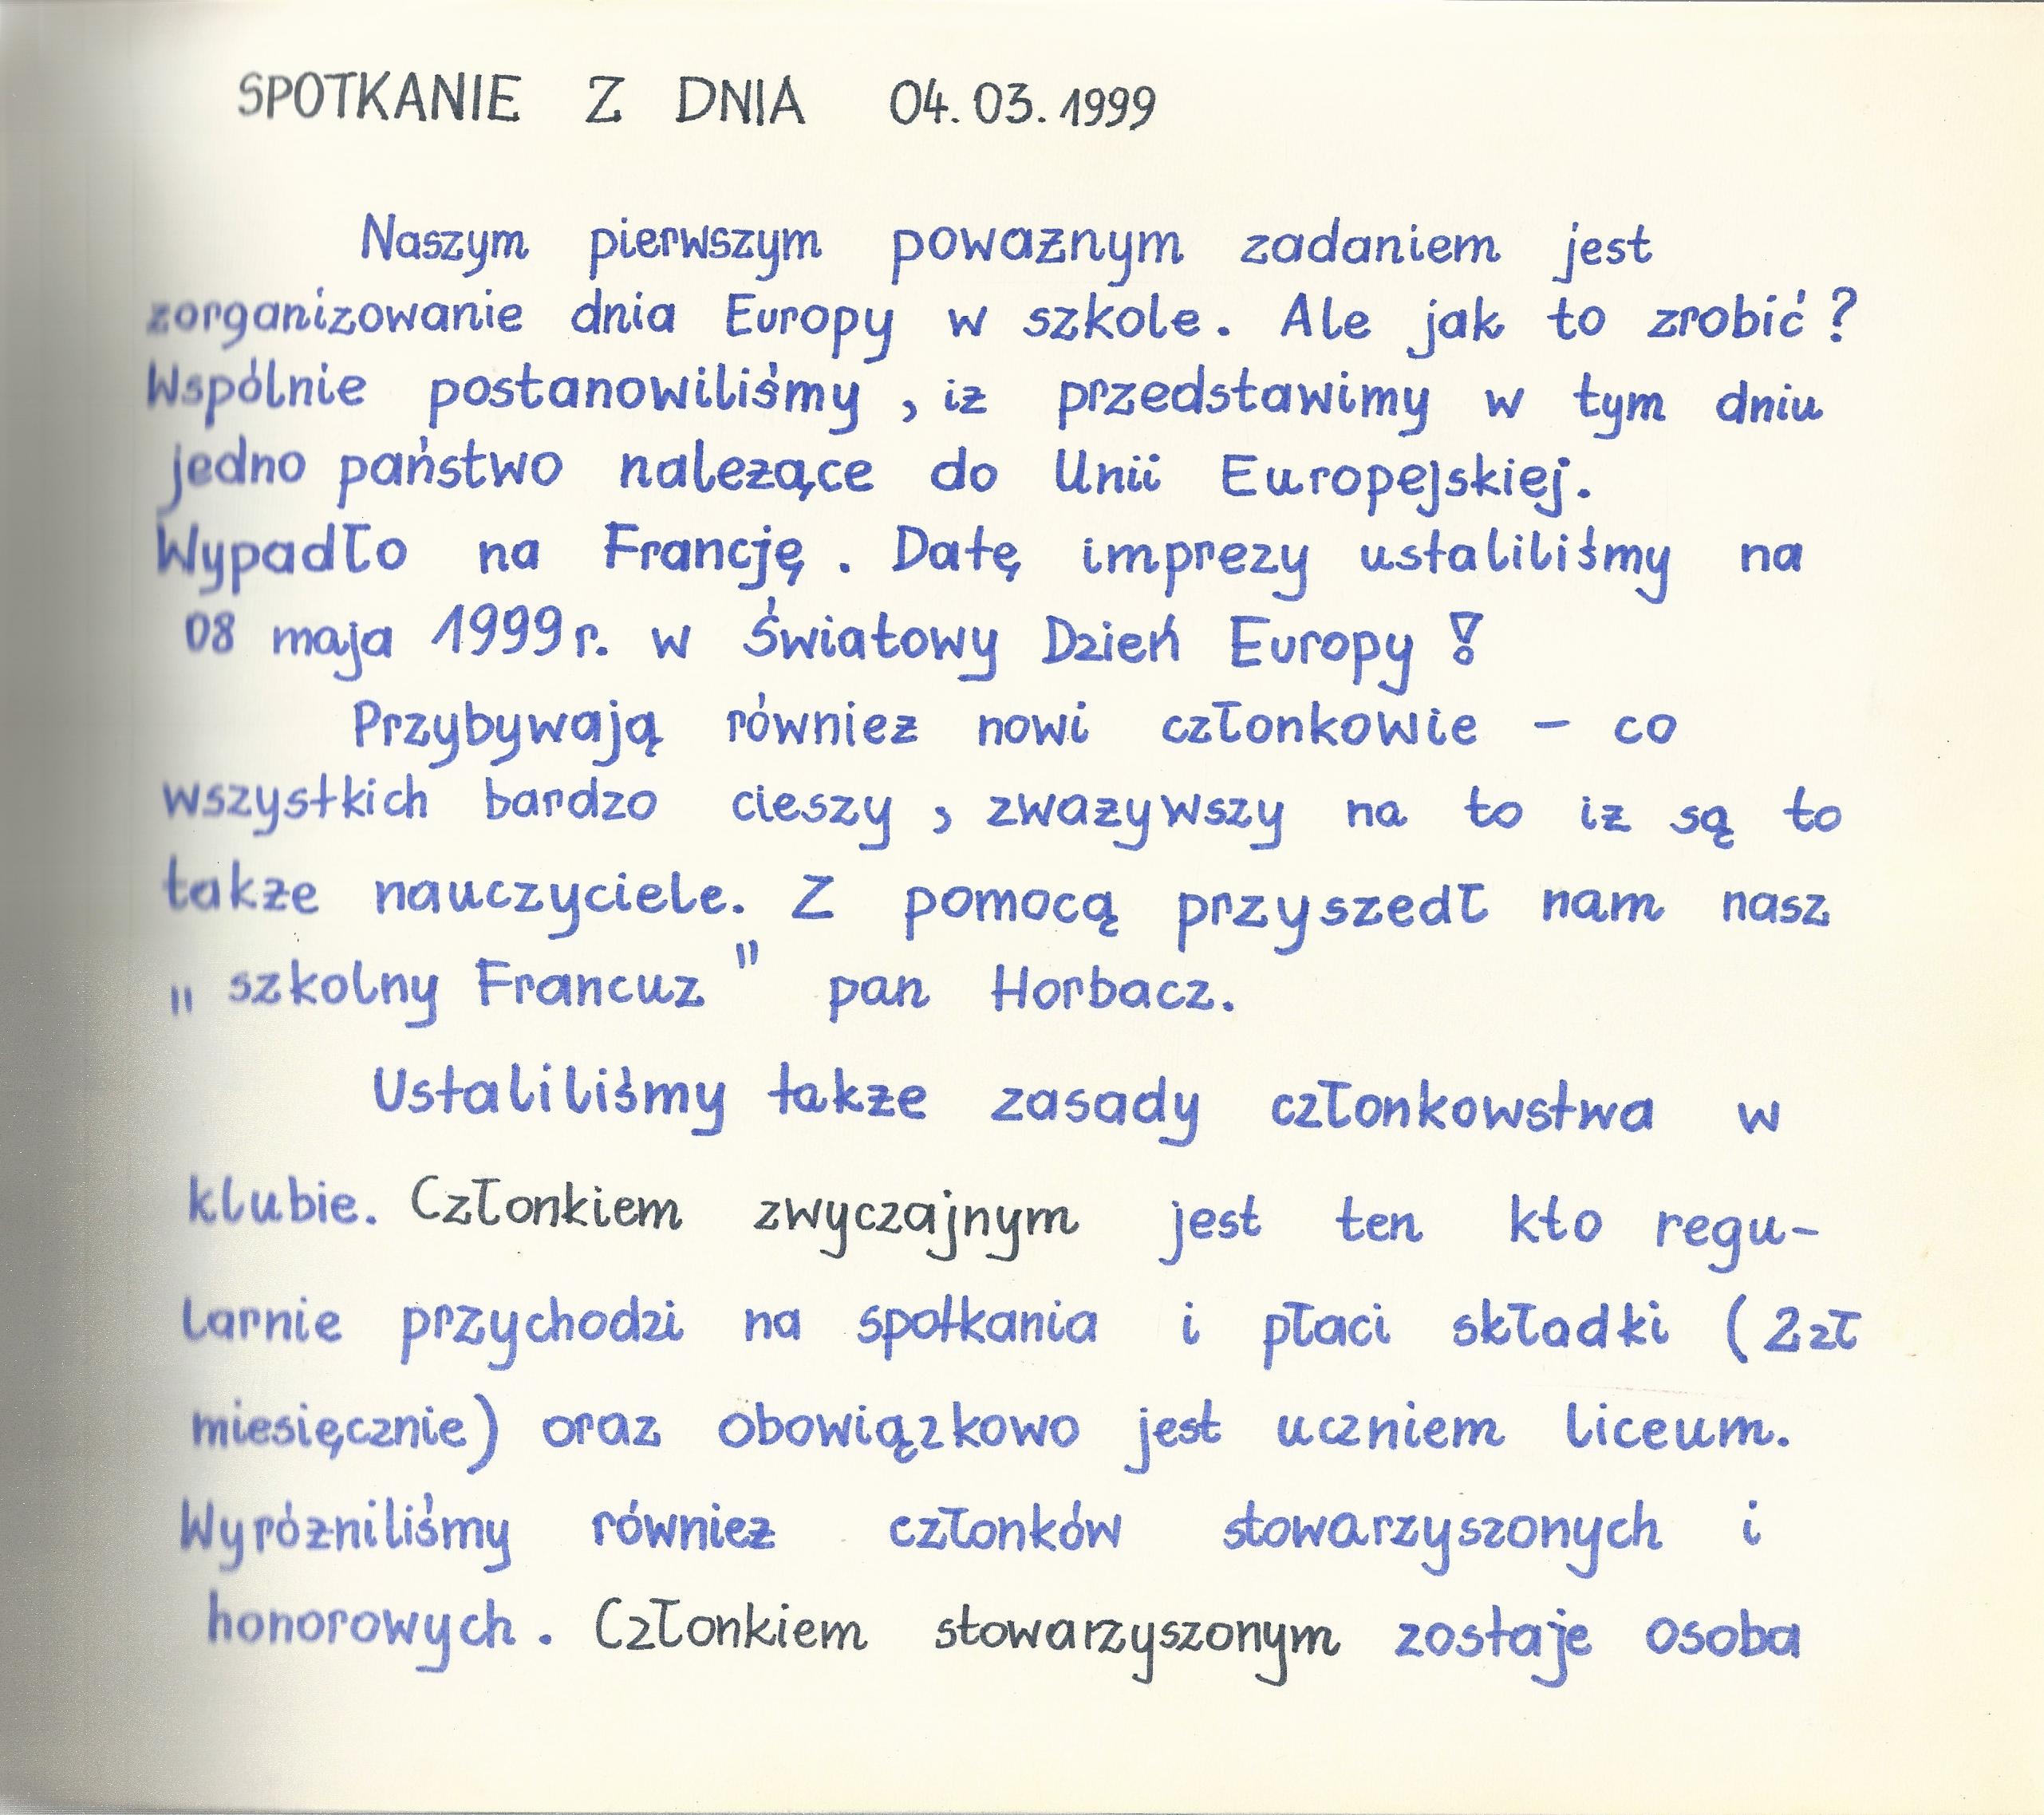 SPOTKANIE Z DNIA 04.03.1999
Naszym pierwszym poważnym zadaniem jest
zorganizowanie dnia Europy w szkole. Ale jak to zrobić?
Wspólnie postanowiliśmy, iż przedstawimy w tym dniu
jedno państwo należące do Unii Europejskiej.
Wypadło na Francję. Datę imprezy ustaliliśmy na
08 maja 1999r. w Światowy Dzień Europy!
Przybywają również nowi członkowie – co
wszystkich bardzo cieszy, zważywszy na to iż są to
także nauczyciele. Z pomocą przyszedł nam nasz
„szkolny Francuz" pan Horbacz.
Ustaliliśmy także zasady członkowstwa w
klubie. Członkiem zwyczajnym jest ten kto regu-
larnie przychodzi na spotkania i płaci składki (2zł
miesięcznie) oraz obowiązkowo jest uczniem liceum.
Wyróżniliśmy również członków stowarzyszonych i
honorowych. Członkiem stowarzyszonym zostaje osoba